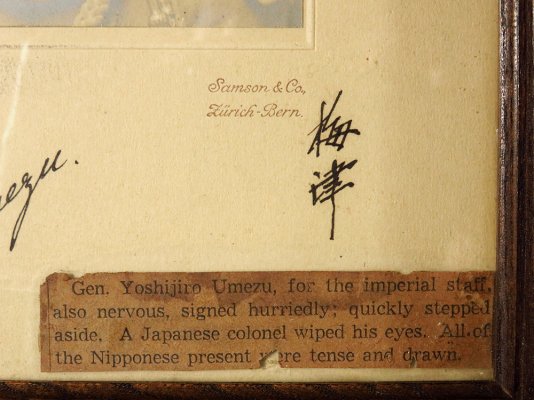 Samson & Co,
Zürich-Bern.
梅津
Gen. Yoshijiro Umezu, for the imperial staff,
also nervous, signed hurriedly; quickly stepped
aside. A Japanese colonel wiped his eyes. All of
the Nipponese present were tense and drawn.